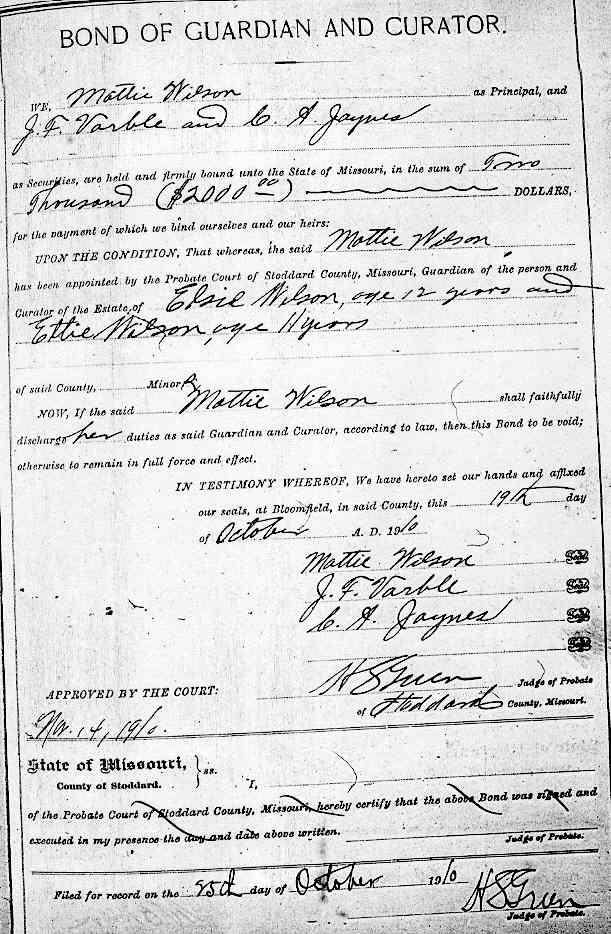 BOND OF GUARDIAN AND CURATOR.
WE, Mattie Wilson as Principal, and
J. F. Varble and C. A. Jaynes
as Securities, are held and firmly bound unto the State of Missouri, in the sum of Two
Thousand ($2000 00) DOLLARS,
for the payment of which we bind ourselves and our heirs:
UPON THE CONDITION, That whereas, the said Mattie Wilson
has been appointed by the Probate Court of Stoddard County, Missouri, Guardian of the person and
Curator of the Estate of Elsie Wilson, age 12 years and
Ettie Wilson, age 11 years
of said County, Minors
NOW, If the said Mattie Wilson shall faithfully
discharge her duties as said Guardian and Curator, according to law, then this Bond to be void;
otherwise to remain in full force and effect.
IN TESTIMONY WHEREOF, We have hereto set our hands and affixed
our seals, at Bloomfield, in said County, this 19th day
of October A. D. 1910
Mattie Wilson Seal
J. F. Varble Seal
C. A. Jaynes Seal
Seal
H S Green Judge of Probate
APPROVED BY THE COURT:
of Stoddard County, Missouri.
Nov. 14, 1910.
State of Missouri, } ss.
County of Stoddard.
I,
of the Probate Court of Stoddard County, Missouri, hereby certify that the above Bond was signed and
executed in my presence the day and date above written.
Judge of Probate.
Filed for record on the 25th day of October 1910 H S Green
Judge of Probate.